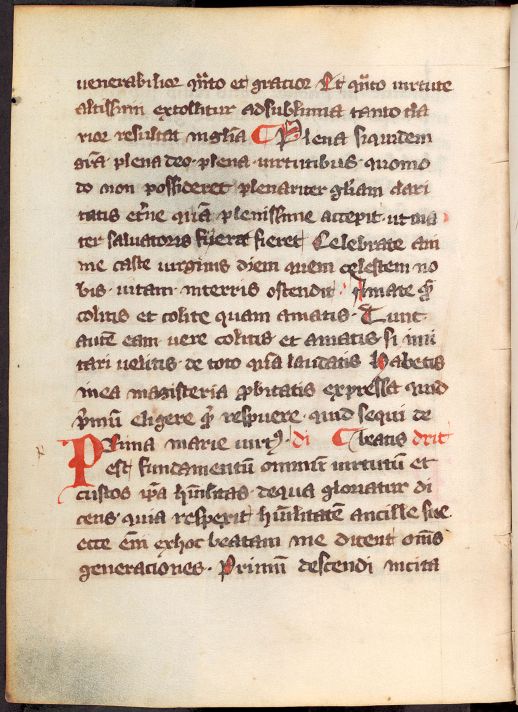 venerabilior q̄nto et gratior Et q̄nto uirtute
altissimi extollitur adsublimia tanto cla
rior resultat inglīa Plena siquidem
grā plena deo · plena uirtutibus · quomo
do non possideret plenariter glīam clari
tatis etr̄ne quā plenissime accepit · ut ma
ter saluatoris fuerat fieret Celebrate ani
me caste uirginis diem quem celestem uo
bis · uitam interris ostendit · Amate q̄
colitis et colite quam amatis · Tunc
autē eam uere colitis et amatis · si imi
tari uelitis de toto quā laudatis Habetis
inea magisteria p̄bitatis expressa quid
p̄mū eligere q̄ respuere · quid sequi de
Prima marie uirtꝰ · di beatis drit
est fundamentū omniū uirtutū et
custos ip̄a hūilitas · dequa gloriatur di
cens · quia respexit hūilitatē ancille sue
ecce em̄ exhoc beatam me dicent om̄s
generationes · Primū descendi incita